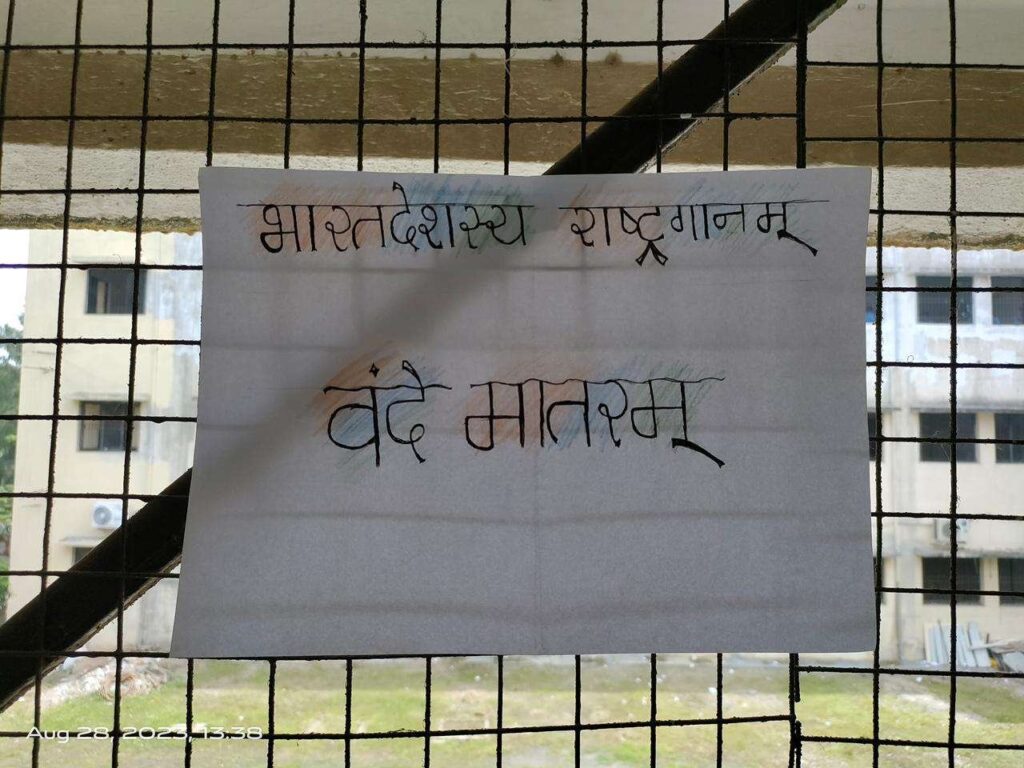 भारतदेशस्य राष्ट्रगानम्
वंदे मातरम्
Aug 28, 2023, 13:38